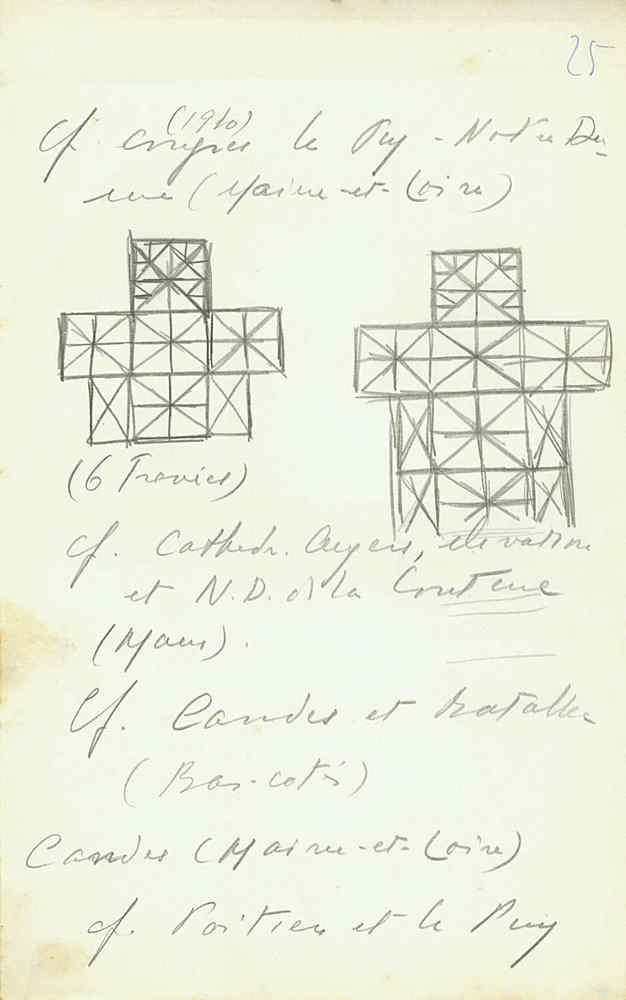 25
(1910)
cf. congrès le Puy - Notre Da-
me (Maine-et-Loire)
(6 Travées)
cf. Cathedr. Angers, élévation
et N.D. de la Couture
(Mans).
Cf. Candes et
(Bas-cotés)
Candes (Maine-et-Loire)
cf. Poitiers et le Puy